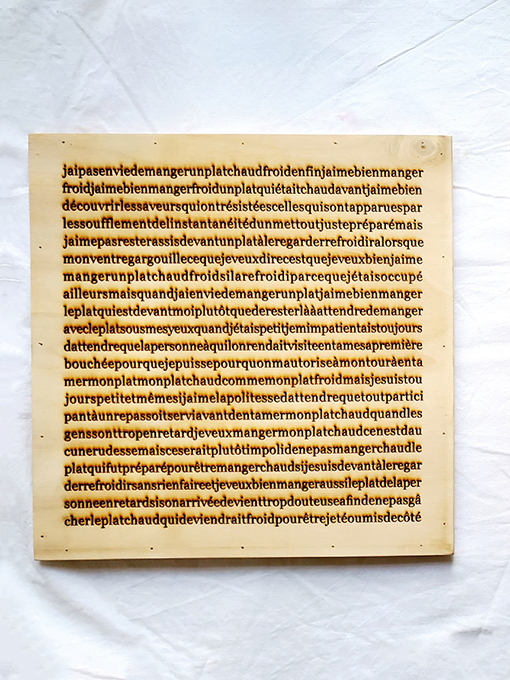 jaipasenviedemangerunplatchaudfroidenfinjaimebienmanger
froidjaimebienmangerfroidunplatquiétaitchaudavantjaimebien
découvrirlessaveursquiontrésistéescellesquisontapparuespar
lessoufflementdelinstantanéitédunmettoutjustepréparémais
jaimepasresterassisdevantunplatàleregarderrefroidiralorsque
monventregargouillecequejeveuxdirecestquejeveuxbienjaime
mangerunplatchaudfroidsilarefroidiparcequejétaisoccupé
ailleursmaisquandjaienviedemangerunplatjaimebienmanger
leplatquiestdevantmoiplutôtquederesterlààattendredemanger
avecleplatsousmesyeuxquandjétaispetitjemimpatientaistoujours
dattendrequelapersonneàquilonrendaitvisiteentamesapremière
bouchéepourquejepuissepourquonmautoriseàmontouràenta
mermonplatmonplatchaudcommemonplatfroidmaisjesuistou
jourspetitetmêmesijaimelapolitessedattendrequetoutpartici
pantàunrepassoitserviavantdentamermonplatchaudquandles
genssonttropenretardjeveuxmangermonplatchaudcenestdau
cunerudessemaisceseraitplutôtimpolidenepasmangerchaudle
platquifutpréparépourêtremangerchaudsijesuisdevantàleregar
derrefroidirsansrienfaireetjeveuxbienmangeraussileplatdelaper
sonneenretardsisonarrivéedevienttropdouteuseafindenepasgâ
cherleplatchaudquideviendraitfroidpourêtrejetéoumisdecôté